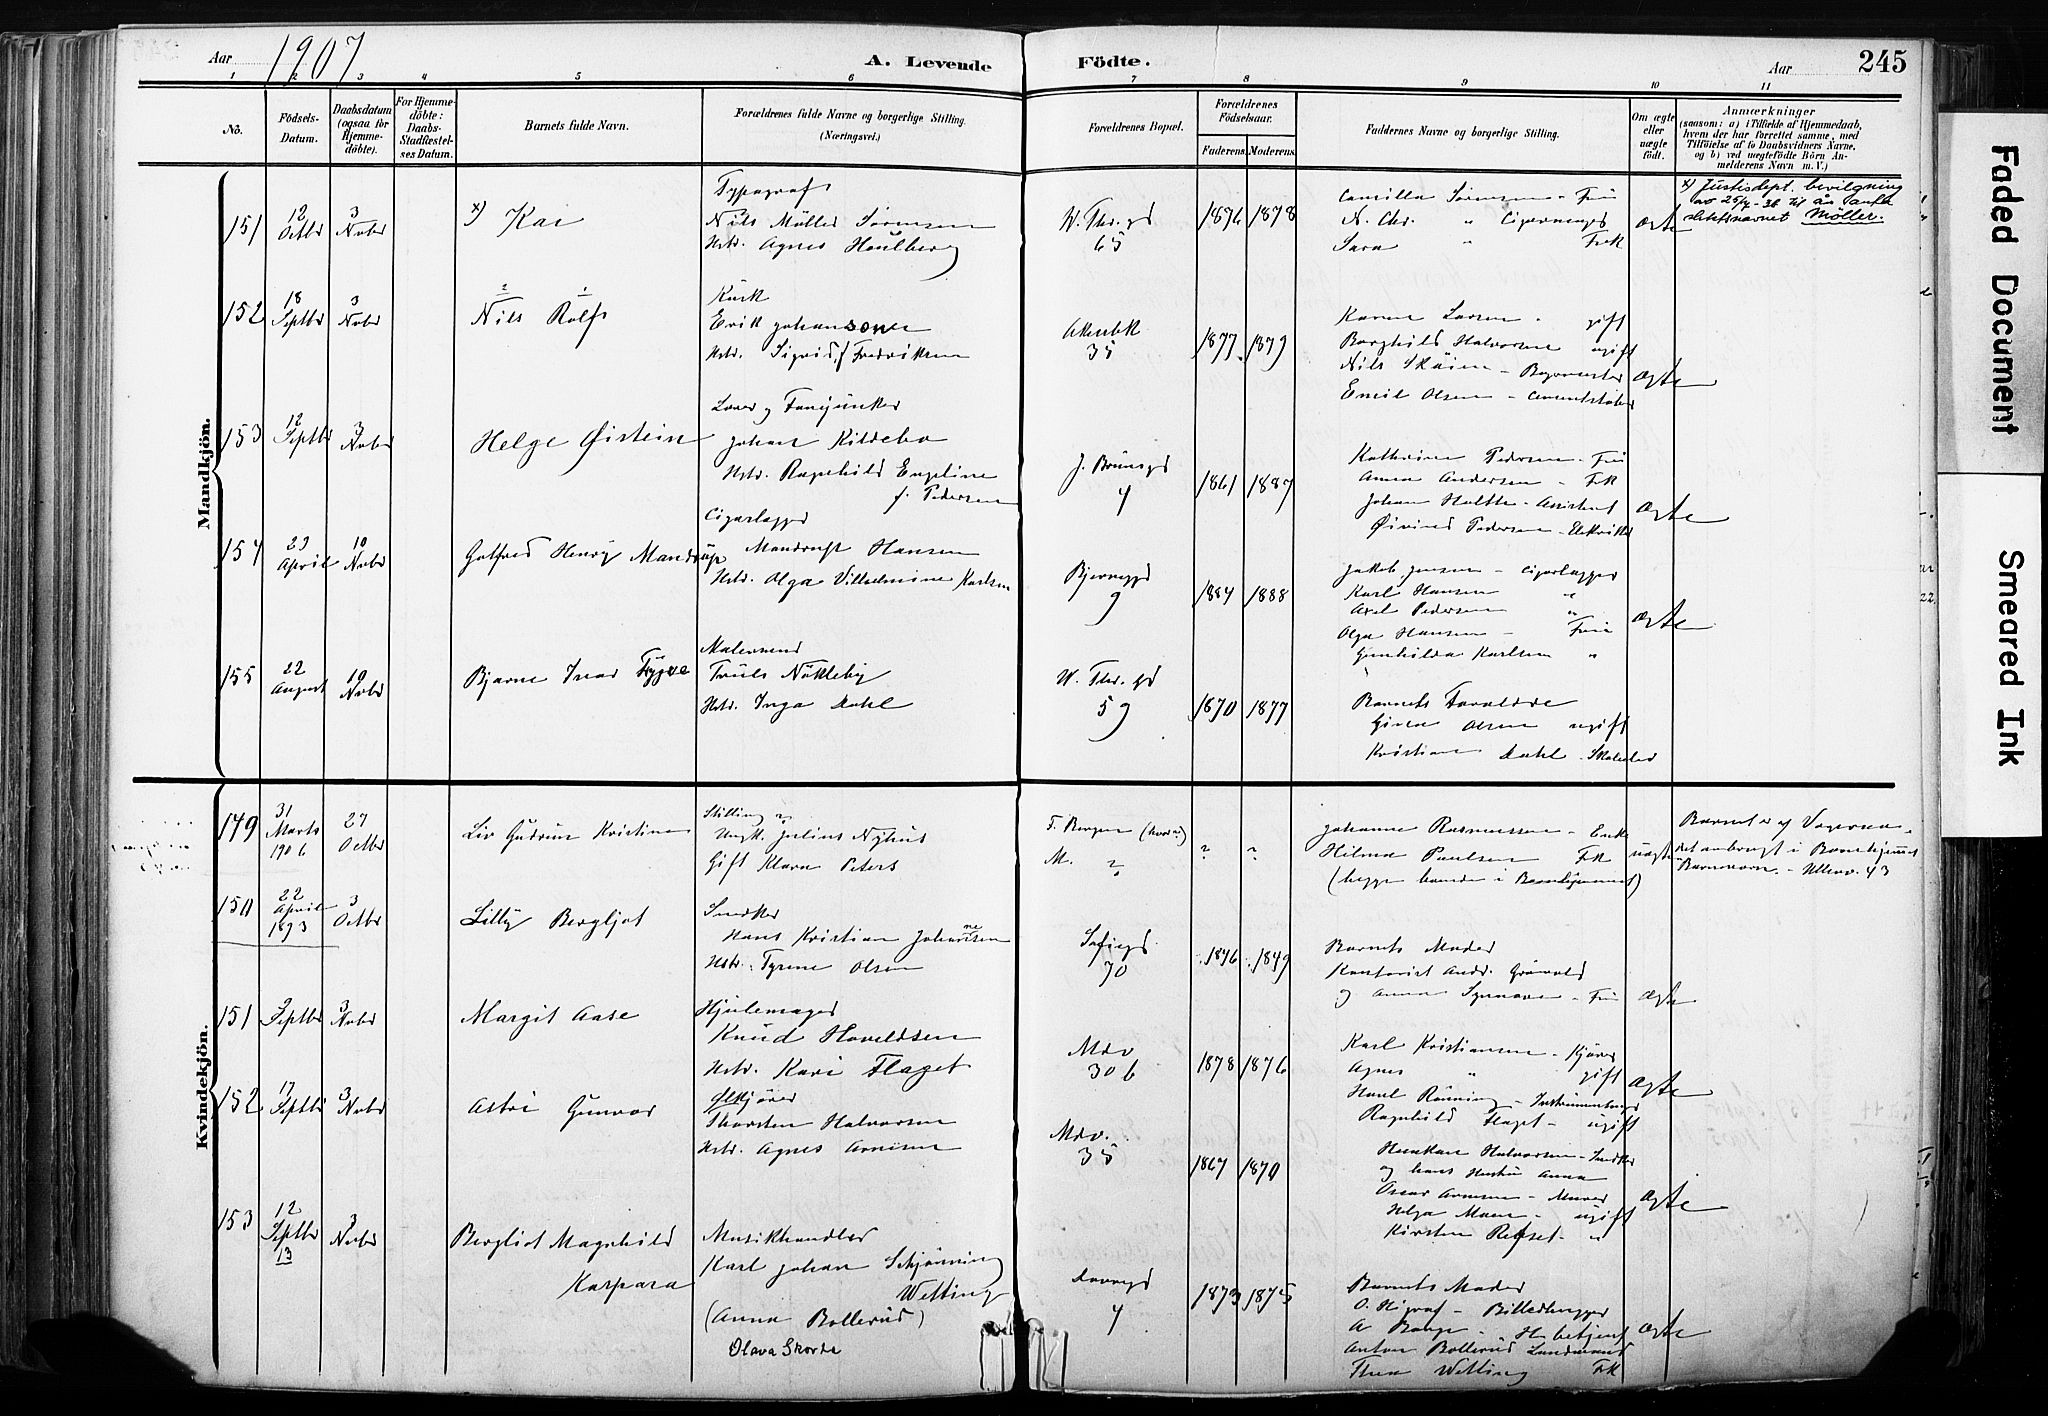 Aar 1907
A. Levende Födte.
Aar 245
1 2 3 4 5 6 7 8 9 10 11
Nô.
Födsels-Datum.
Daabsdatum (ogsaa for Hjemme-döbte).
For Hjemme-döbte: Daabs-Stadfæstel-ses Datum.
Barnets fulde Navn.
Forældrenes fulde Navne og borgerlige Stilling. (Næringsvei.)
Forældrenes Bopæl.
Forældrenes Födselsaar.
Faderens. Moderens.
Faddernes Navne og borgerlige Stilling.
Om ægte eller uægte födt.
Anmærkninger
(saasom: a) i Tilfælde af Hjemmedaab,
hvem der har forrettet samme, med
Tilföielse af to Daabsvidners Navne.
og b) ved uægtefödte Börn An-
melderens Navn m. V.)
Mandkjön.
151 12 Octbr 3 Novbr x) Kai
Typograf
Nils Möller Sörensen
Hstr. Agnes Houlberg
W. Thr. gd 65 1876 1878
Camilla Sörensen - Frue
N. Chr. " Cigarmagd
Sara " Frk
ægte
x) Justisdept. bevilgning
av 25/7-36 til än anta
slektsnavnet Möller.
152 18 Septbr 3 Novbr Nils Rolf
2 1
Kusk
Erik Johansson
Hstr. Sigrid f. Fredriksen
Akersbk 35 1877 1879
Karen Larsen - gift
Borghild Halvorsen ugift
Nils Skoien - Bagermester
Emil Olsen - Cementstøber
ægte
153 12 Septbr 3 Novbr Helge Øistein
Lærer og Fanejunker
Johan Kildebo
Hstr. Ragnhild Engeline
f. Pedersen
J. Brunsgd 4 1861 1887
Kathrine Pedersen - Frue
Anna Andersen - Frk
Johan Holthe - Assistent
Øivind Pedersen - Elektriker
ægte
154 29 April 10 Novbr Gotfred Henry Mandrup
Cigarlagger
Mandrup Hansen
Hstr. Olga Vilhelmine Karlsen
Bjerregd 9 1884 1888
Jakob Jensen - Cigarlagger
Karl Hansen "
Axel Pedersen "
Olga Hansen - Frue
Gunhilda Karlsen "
ægte
155 22 August 10 Novbr Bjarne Ivar Trygve
Malersvend
Truls Nökleby
Hstr. Inga Dahl
W. Thr. gd 59 1870 1877
Barnets Forældre
Olsen ugift
Kristian Dahl -
Kvindekjön.
149 31 Marts 1906 27 Octbr Liv Gudrun Kristine
Stilling ?
Ungk. Julius Nyhus
Gift Klara Peters
F. Bergen (hvor?)
M. ? ? ?
Johanne Rasmussen - Enke
Hilma Paulsen Frk
(begge boende i Barnehjemmet)
uægte
Barnet er af Vergeraa-
det anbragt i Barnehjemmet
- Ullev. 43
150 22 April 1893 3 Octbr Lilly Bergljot
Snedker
Hans Kristian Johannesen
Hstr. Tyrine Olsen
Sofiegd 70 1846 1849
Barnets Moder
Kontorist Andr. Grönvold
og Anna - Frue
ægte
151 2 Septbr 3 Novbr Margit Aase
Hjulemager
Knud Haveldsen
Hstr. Kari Flaget
Mdv 30b 1878 1876
Karl Kristiansen - Kjører
Agnes " gift
Harl Rönning - Instrumentmgr
Ragnhild Flaget - ugift
ægte
152 17 Septbr 3 Novbr Astri Gunvor
Ølkjører
Thorsten Halvorsen
Hstr. Agnes Arnesen
Mdv. 35 1867 1870
Haakon Halvorsen - Snedker
og hans Hustru Anna
Oscar Arnesen - Murer
Helga Moen - ugift
Kirsten Refset - "
ægte
153 12 Septbr 13 3 Novbr Bergliot Magnhild
Kaspara
Musikhandler
Karl Johan Schjönning
Wetting
(Anna Bollerud)
Olava Skorda
4 1873 1875
Barnets Moder
O. - Billedhugger
A Borge - H betjent
Anton Bollerud Landmand
Thea Wetting Frk
ægte
Faded Document
Smeared Ink